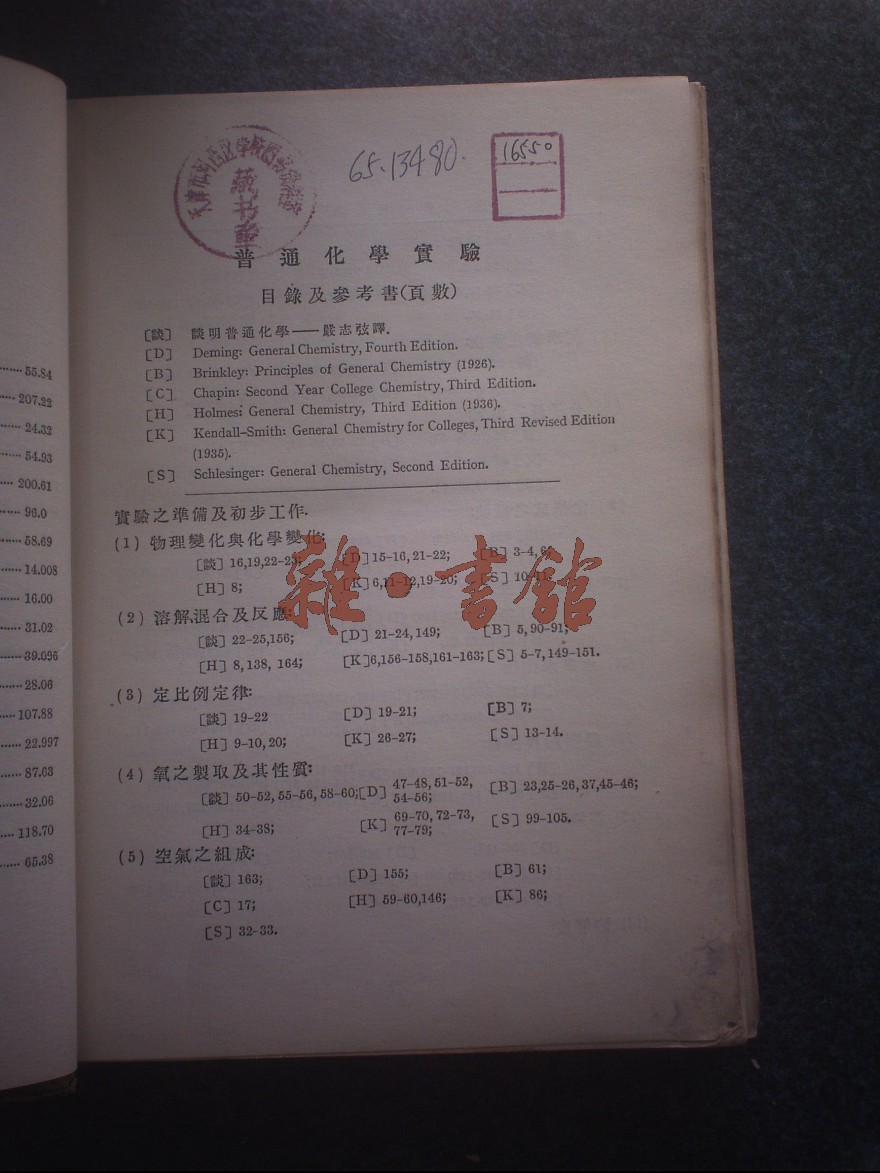 55.84
207.22
24.32
54.93
200.61
96.0
58.69
14.008
16.00
31.02
39.096
28.06
107.88
22.997
87.63
32.06
118.70
65.38
藏书章
65.13480.
16550
普通化學實驗
目錄及參考書(頁數)
[談] 談明普通化學——嚴志弦譯.
[D] Deming: General Chemistry, Fourth Edition.
[B] Brinkley: Principles of General Chemistry (1926).
[C] Chapin: Second Year College Chemistry, Third Edition.
[H] Holmes: General Chemistry, Third Edition (1936).
[K] Kendall-Smith: General Chemistry for Colleges, Third Revised Edition
(1935).
[S] Schlesinger: General Chemistry, Second Edition.
實驗之準備及初步工作.
(1) 物理變化與化學變化:
[談] 16,19,22-23; [D] 15-16, 21-22; [B] 3-4, 6;
[H] 8; [K] 6,11-12,19-20; [S] 10-11.
雜·書館
(2) 溶解、混合及反應:
[談] 22-25,156; [D] 21-24, 149; [B] 5, 90-91;
[H] 8, 138, 164; [K] 6,156-158,161-163; [S] 5-7, 149-151.
(3) 定比例定律:
[談] 19-22 [D] 19-21; [B] 7;
[H] 9-10, 20; [K] 26-27; [S] 13-14.
(4) 氧之製取及其性質:
[談] 50-52, 55-56, 58-60; [D] 47-48, 51-52, 54-56; [B] 23,25-26, 37,45-46;
[H] 34-38; [K] 69-70, 72-73, 77-79; [S] 99-105.
(5) 空氣之組成:
[談] 163; [D] 155; [B] 61;
[C] 17; [H] 59-60,146; [K] 86;
[S] 32-33.